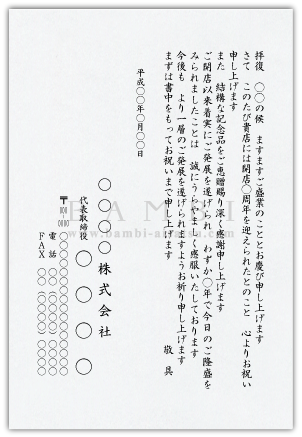 拝復　○○の候　ますますご盛業のこととお慶び申し上げます
さて　このたび貴店には開店○周年を迎えられたとのこと　心よりお祝い
申し上げます
また　結構な記念品をご恵贈賜り深く感謝申し上げます
ご開店以来着実にご発展を遂げられ　わずか○年で今日のご隆盛を
みられましたことは　誠にうらやましく感服いたしております
今後も　より一層のご発展を遂げられますようお祈り申し上げます
まずは書中をもってお祝いまで申し上げます
敬具
平成○○年○月○○日
○○○○株式会社
代表取締役　○○○○
〒○○○-○○○○
電話
FAX
BAMBI